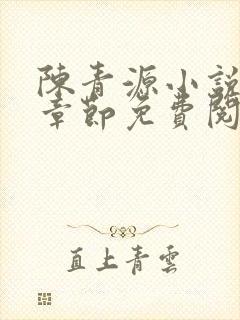 陳青源小說
章節免費閱
直上青雲